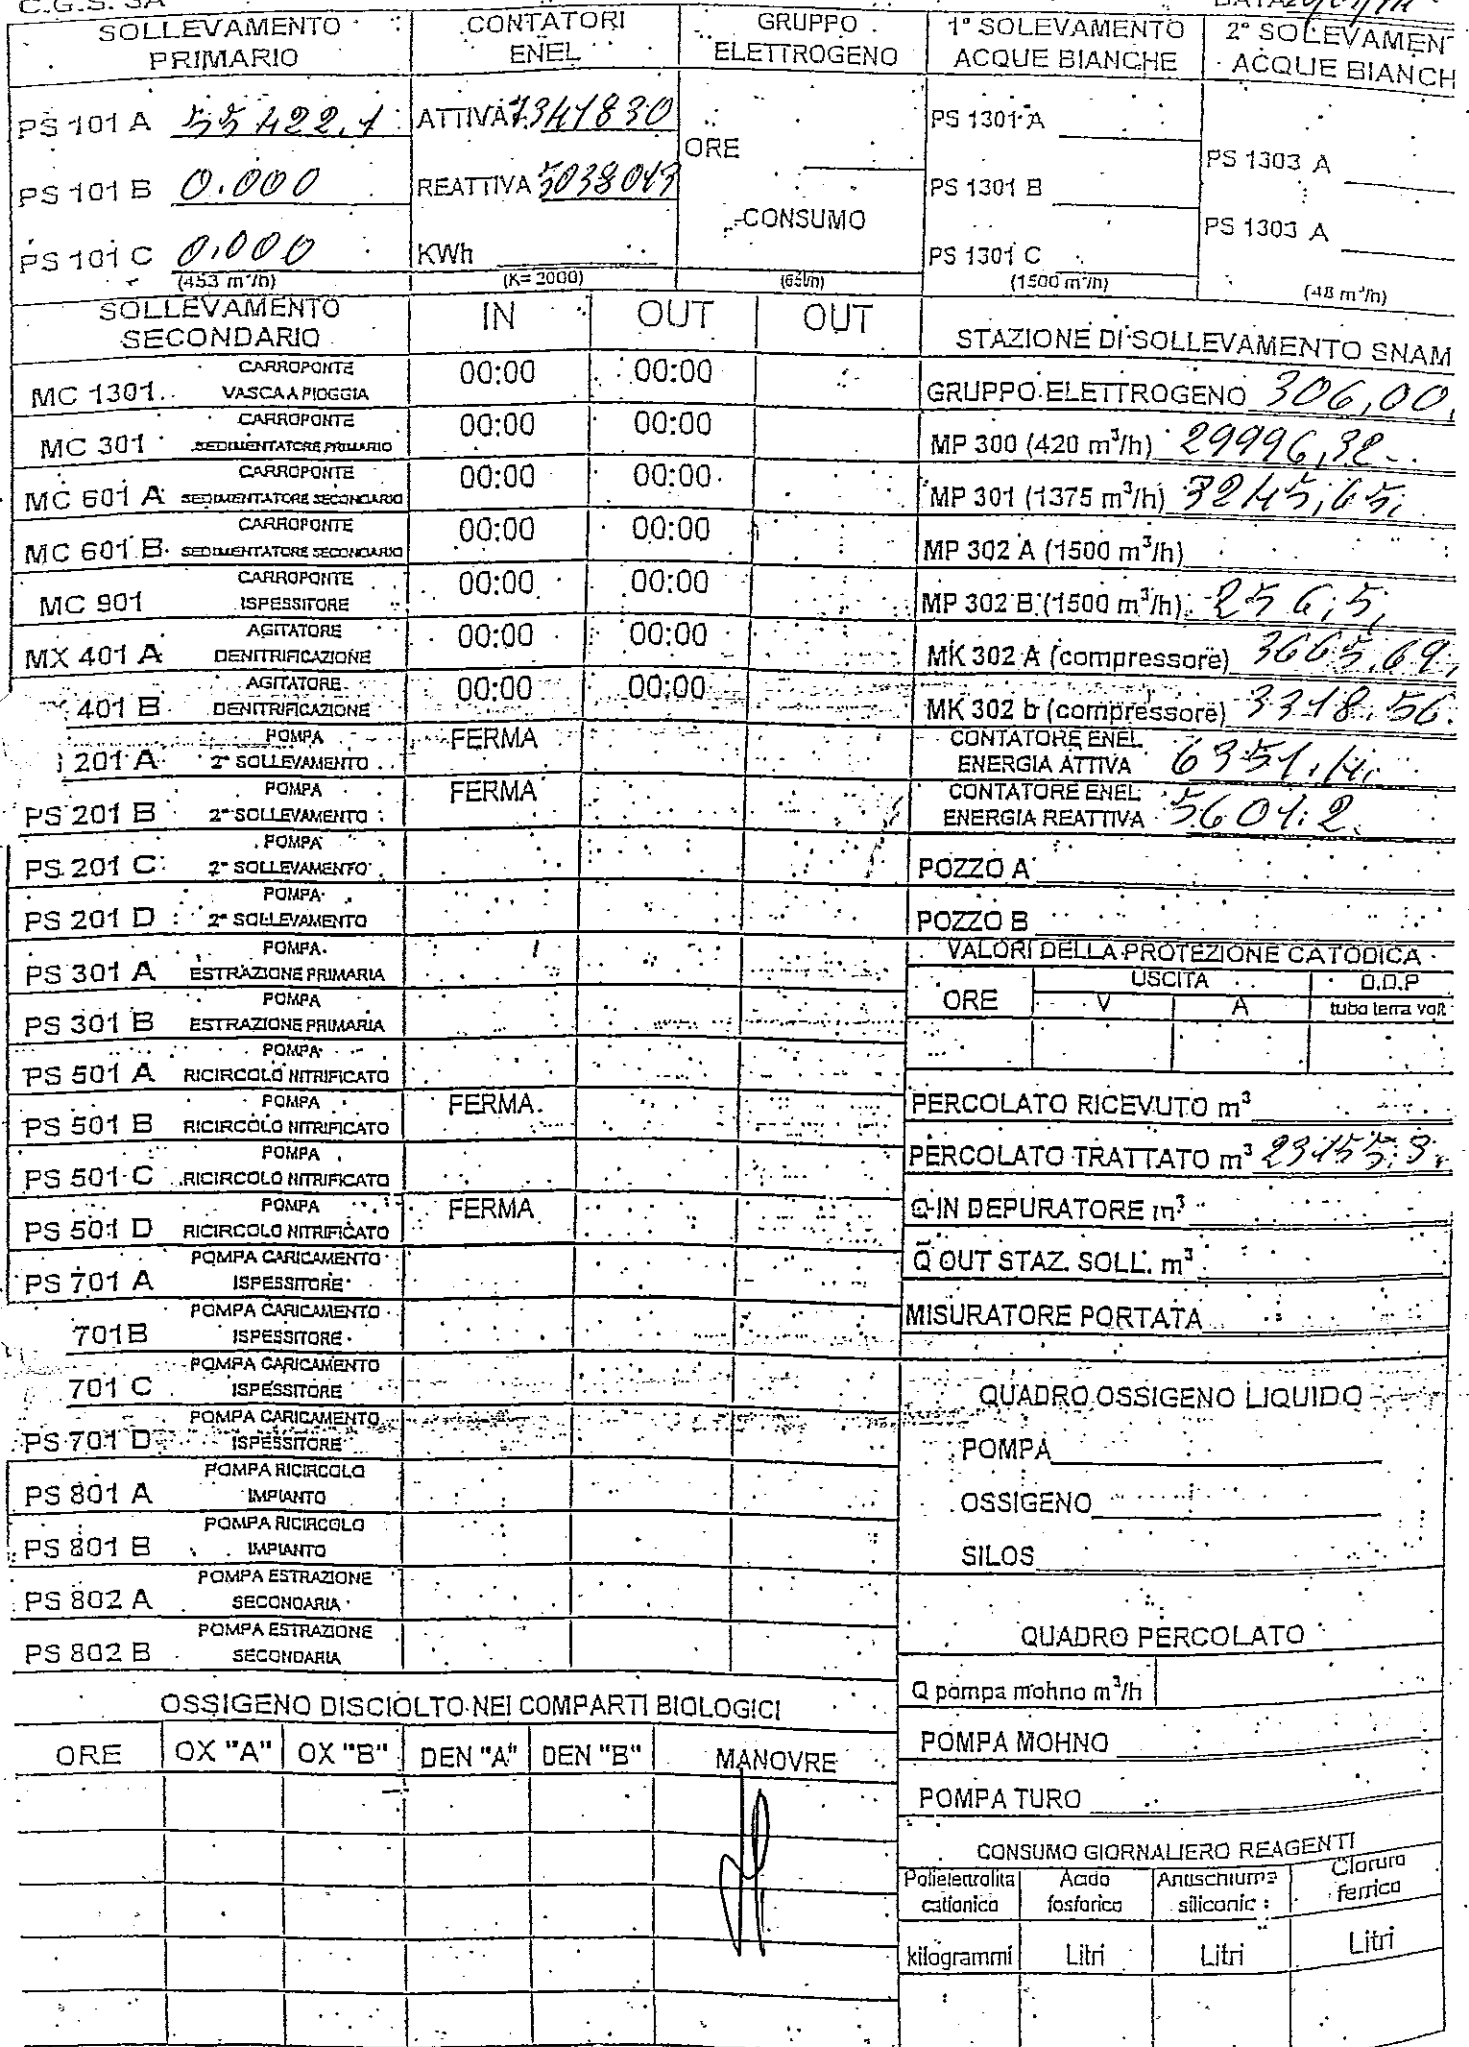 C.G.S. SA
DATA
SOLLEVAMENTO PRIMARIO
CONTATORI ENEL
GRUPPO ELETTROGENO
1° SOLEVAMENTO ACQUE BIANCHE
2° SOLLEVAMEN ACQUE BIANCH
PS 101 A 55422,1 ATTIVA 7341830 ORE PS 1301 A PS 1303 A
PS 101 B 0.000 REATTIVA 5038013 CONSUMO PS 1301 B PS 1303 A
PS 101 C 0,000 KWh PS 1301 C
(453 m³/h) (K= 2000) (65l/h) (1500 m³/h) (48 m³/h)
SOLLEVAMENTO SECONDARIO IN OUT OUT
MC 1301 CARROPONTE VASCA A PIOGGIA 00:00 00:00
MC 301 CARROPONTE SEDIMENTATORE PRIMARIO 00:00 00:00
MC 601 A CARROPONTE SEDIMENTATORE SECONDARIO 00:00 00:00
MC 601 B CARROPONTE SEDIMENTATORE SECONDARIO 00:00 00:00
MC 901 CARROPONTE ISPESSITORE 00:00 00:00
MX 401 A AGITATORE DENITRIFICAZIONE 00:00 00:00
401 B AGITATORE DENITRIFICAZIONE 00:00 00:00
201 A POMPA 2° SOLLEVAMENTO FERMA
PS 201 B POMPA 2° SOLLEVAMENTO FERMA
PS 201 C POMPA 2° SOLLEVAMENTO
PS 201 D POMPA 2° SOLLEVAMENTO
PS 301 A POMPA ESTRAZIONE PRIMARIA
PS 301 B POMPA ESTRAZIONE PRIMARIA
PS 501 A POMPA RICIRCOLO NITRIFICATO
PS 501 B POMPA RICIRCOLO NITRIFICATO FERMA
PS 501 C POMPA RICIRCOLO NITRIFICATO
PS 501 D POMPA RICIRCOLO NITRIFICATO FERMA
PS 701 A POMPA CARICAMENTO ISPESSITORE
701B POMPA CARICAMENTO ISPESSITORE
701 C POMPA CARICAMENTO ISPESSITORE
PS 701 D POMPA CARICAMENTO ISPESSITORE
PS 801 A POMPA RICIRCOLO IMPIANTO
PS 801 B POMPA RICIRCOLO IMPIANTO
PS 802 A POMPA ESTRAZIONE SECONDARIA
PS 802 B POMPA ESTRAZIONE SECONDARIA
STAZIONE DI SOLLEVAMENTO SNAM
GRUPPO ELETTROGENO 306,00
MP 300 (420 m³/h) 29996,32
MP 301 (1375 m³/h) 3245,65
MP 302 A (1500 m³/h)
MP 302 B (1500 m³/h) 256,5
MK 302 A (compressore) 3665,69
MK 302 b (compressore) 3318,56
CONTATORE ENEL ENERGIA ATTIVA 6351,14
CONTATORE ENEL ENERGIA REATTIVA 5601,2
POZZO A
POZZO B
VALORI DELLA PROTEZIONE CATODICA
ORE USCITA D.D.P
V A tubo terra volt
PERCOLATO RICEVUTO m³
PERCOLATO TRATTATO m³ 23155,3
Q IN DEPURATORE m³
Q OUT STAZ. SOLL. m³
MISURATORE PORTATA
QUADRO OSSIGENO LIQUIDO
POMPA
OSSIGENO
SILOS
QUADRO PERCOLATO
Q pompa mohno m³/h
POMPA MOHNO
POMPA TURO
OSSIGENO DISCIOLTO NEI COMPARTI BIOLOGICI
ORE OX "A" OX "B" DEN "A" DEN "B" MANOVRE
CONSUMO GIORNALIERO REAGENTI
Polielettrolita cationico Acido fosforico Antischiuma siliconic Cloruro ferrico
kilogrammi Litri Litri Litri